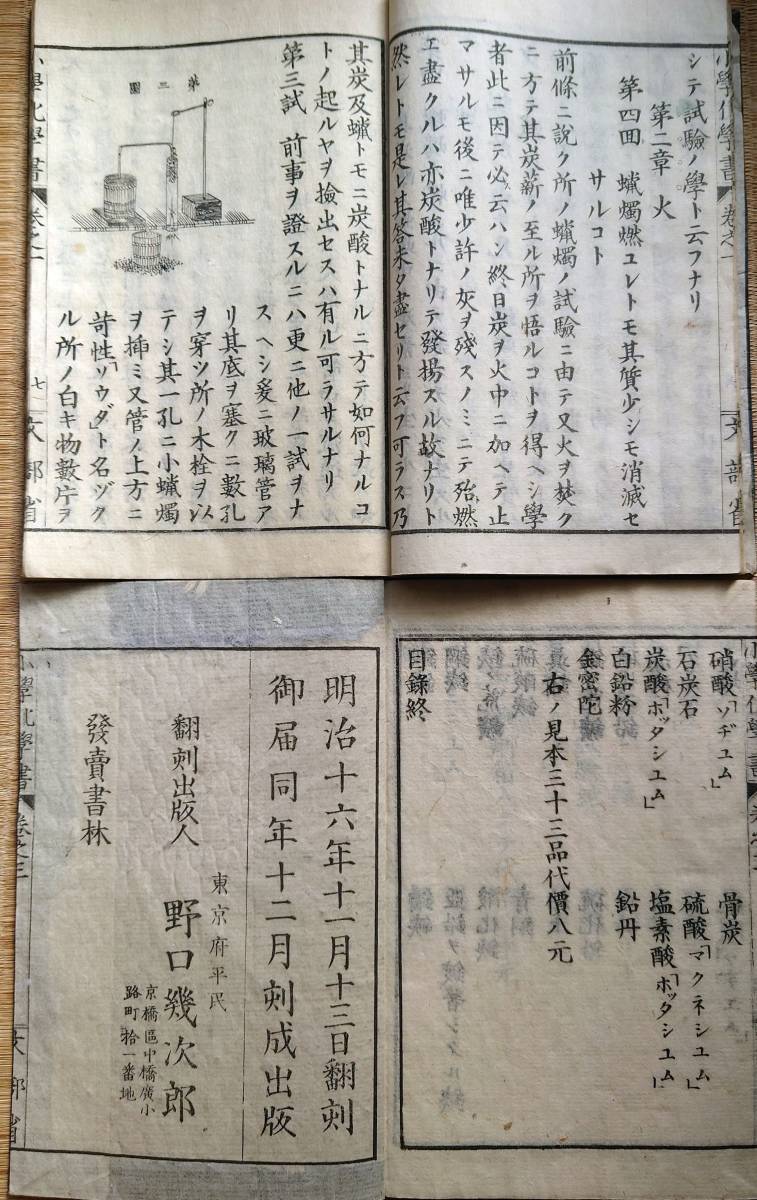 小學化學書 卷之一
文部省
シテ試驗ノ學ト云フナリ
第二章 火
第四回 蠟燭燃ユレトモ其質少シモ消滅セ
サルコト
前條ニ說ク所ノ蠟燭ノ試驗ニ由テ又火ヲ焚ク
ニ方テ其炭薪ノ至ル所ヲ悟ルコトヲ得ヘシ學
者此ニ因テ必ス云ハン終日炭ヲ火中ニ加ヘテ止
マサルモ後ニ唯少許ノ灰ヲ殘スノミニテ殆燃
エ盡クルハ亦炭酸トナリテ發揚スル故ナリト
然レトモ是レ其答未タ盡セリト云フ可ラス乃
其炭及蠟トモニ炭酸トナルニ方テ如何ナルコ
トノ起ルヤヲ撿出セスハ有ル可ラサルナリ
第三試 前事ヲ證スルニハ更ニ他ノ一試ヲナ
スヘシ爰ニ玻璃管ア
リ其底ヲ塞クニ數孔
ヲ穿ツ所ノ木栓ヲ以
テシ其一孔ニ小蠟燭
ヲ揷ミ又管ノ上方ニ
苛性「ソウダ」ト名ヅク
ル所ノ白キ物數片ヲ
第三圖
小學化學書 卷之一
七
文部省
小學化學書
硝酸「ソヂユム」
骨炭
石炭石
硫酸「マクネシユム」
炭酸「ポッタシユム」
塩素酸「ポッタシユム」
白鉛粉
鉛丹
金密陀
右ノ見本三十三品代價八元
目錄終
明治十六年十一月十三日翻刻
御届同年十二月刻成出版
東京府平民
翻刻出版人 野口幾次郎
京橋區中橋廣小
路町拾一番地
發賣書林
小學化學書 卷之三
文部省